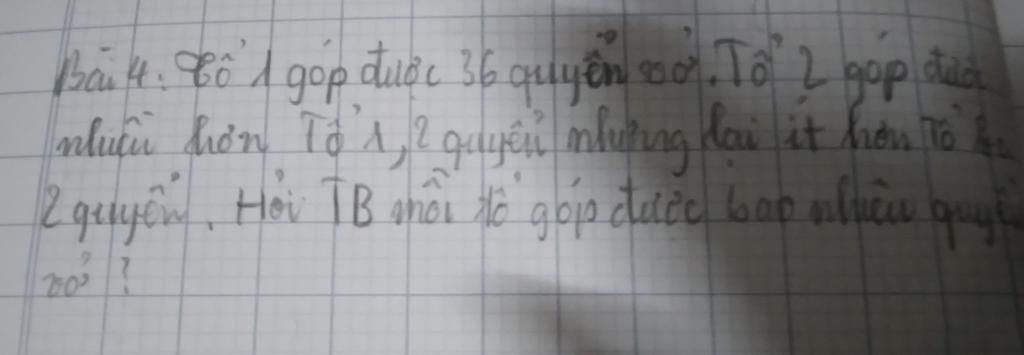 Bài 4: Tổ 1 góp được 36 quyển vở. Tổ 2 góp được
nhiều hơn Tổ 1, 2 quyển nhưng lại ít hơn Tổ
2 quyển. Hỏi TB mỗi tổ góp được bao nhiêu quyển
vở?